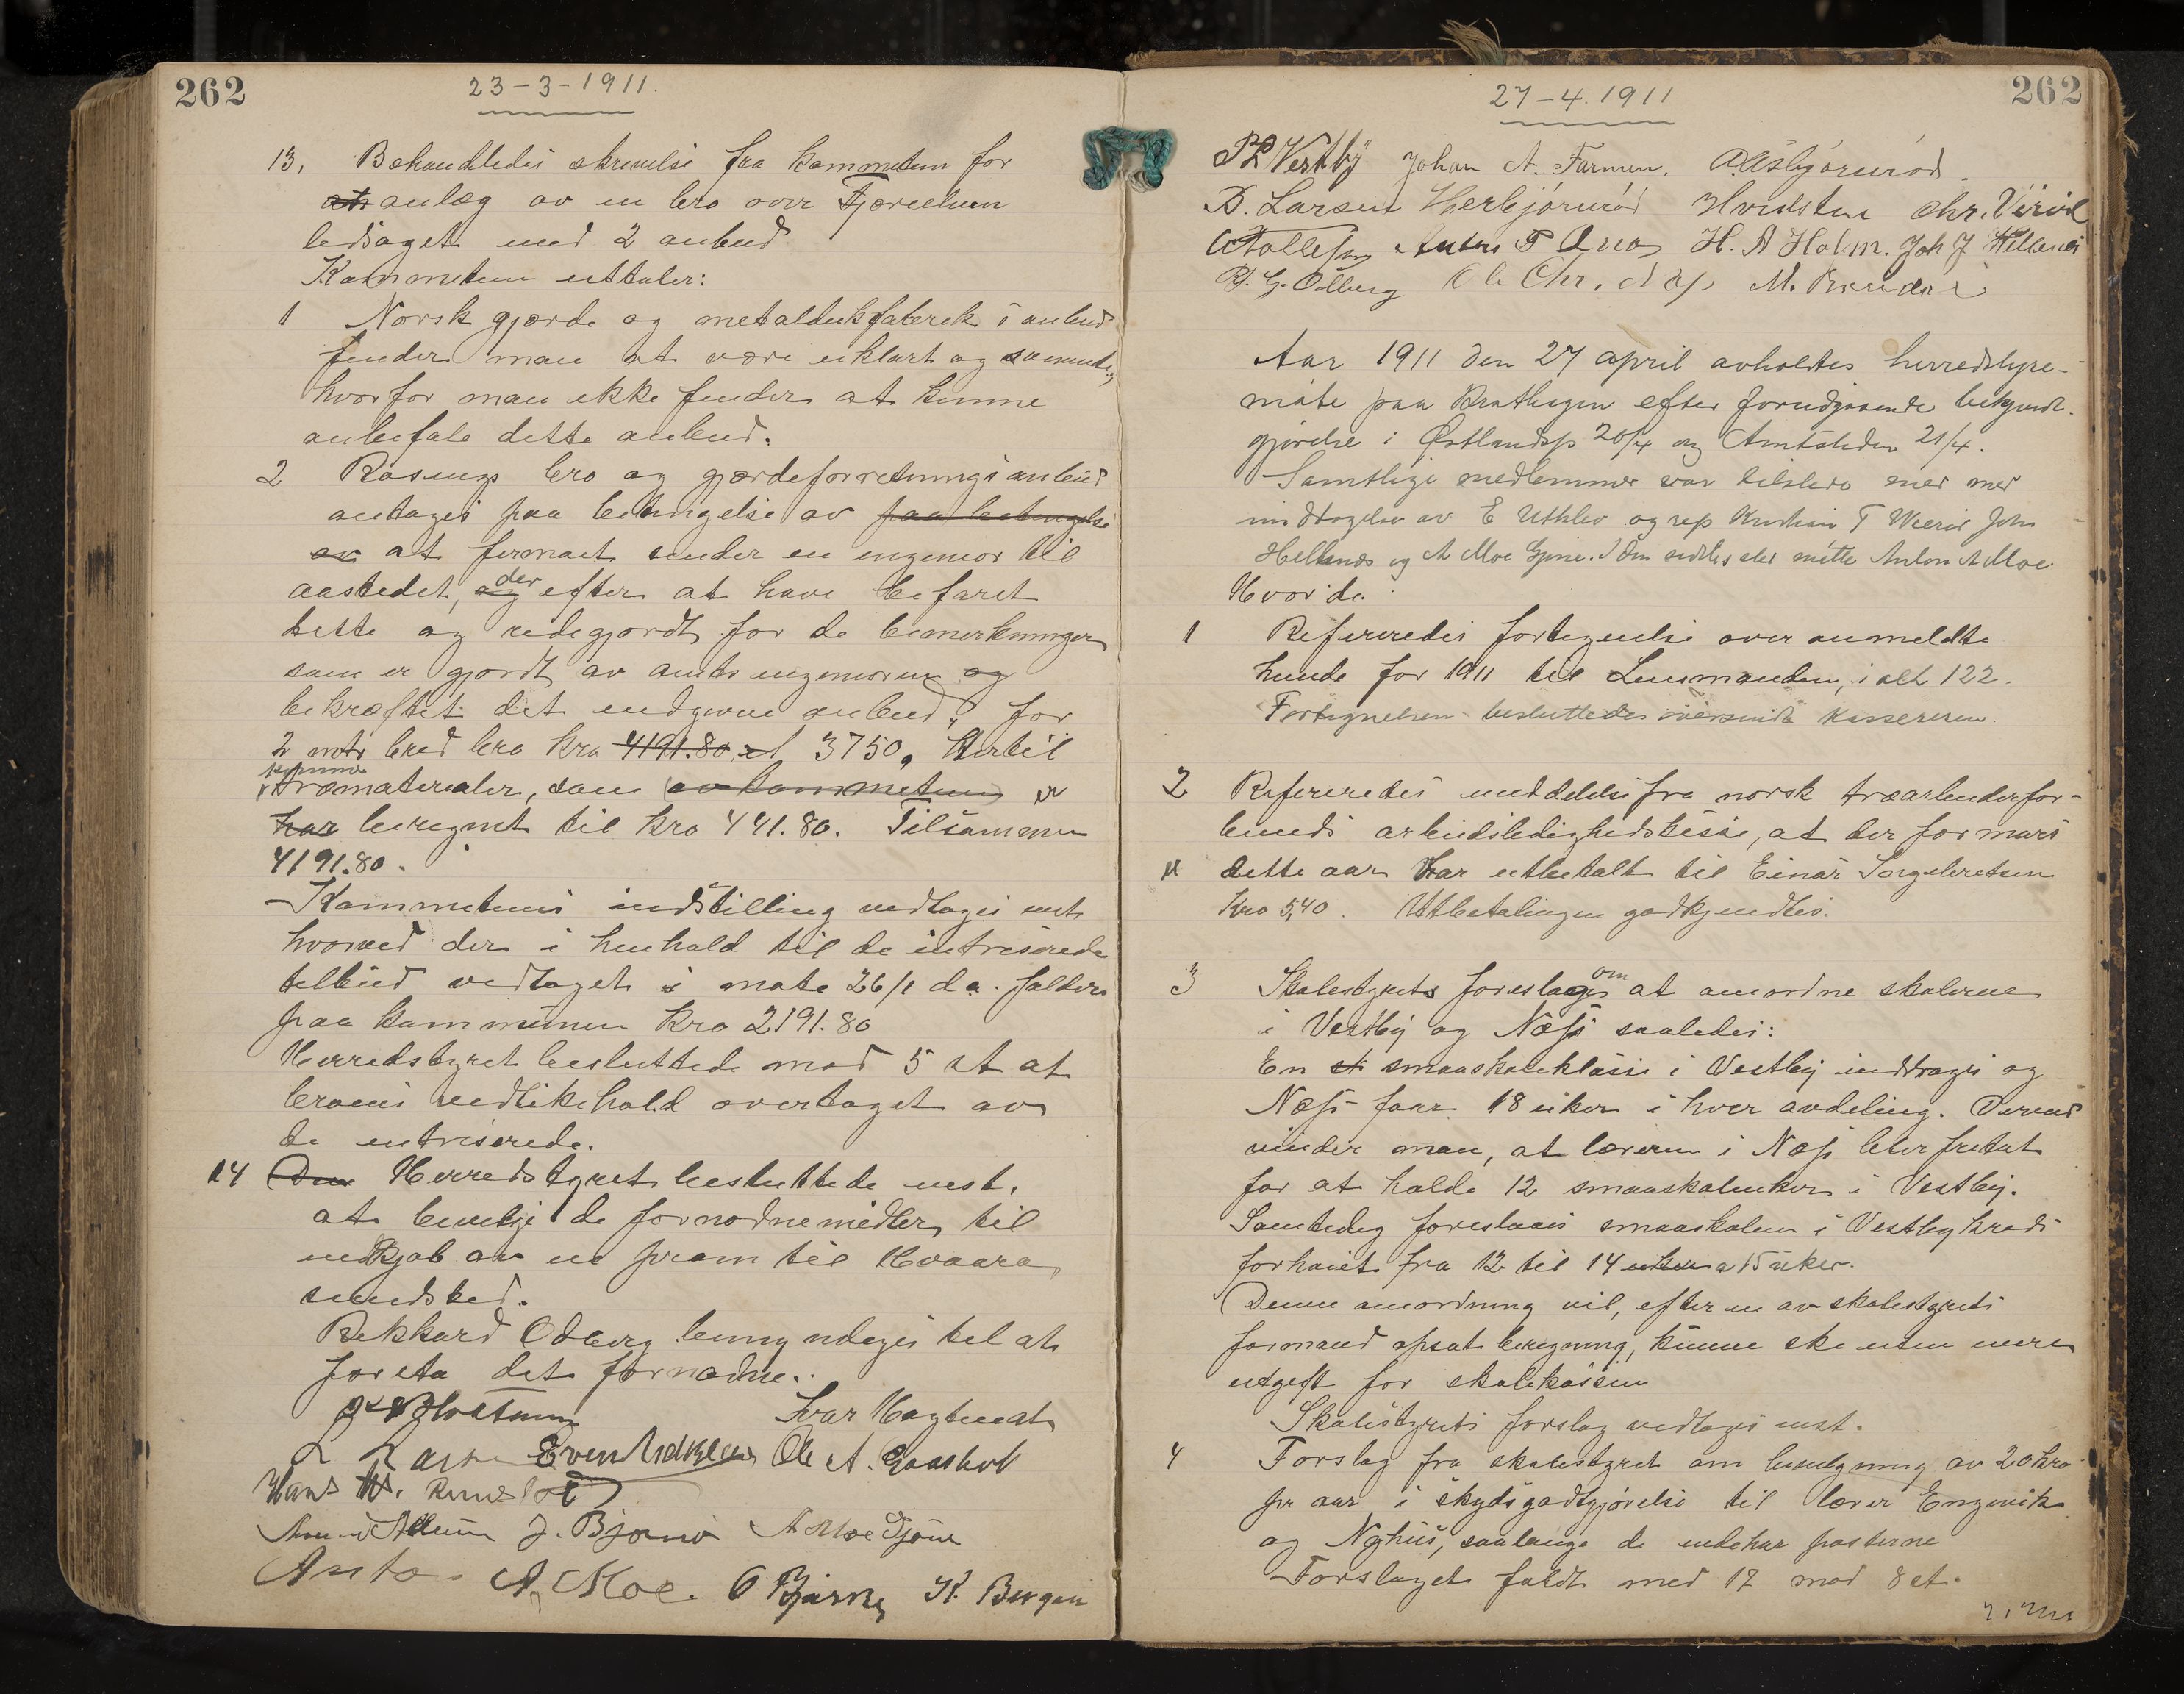 262
23-3-1911.
13, Behandledes skrivelse fra kommiteen for
at anlæg av en bro over Fjærelven
ledsaget med 2 anbud
Kommiteen uttaler:
1 Norsk gjærde og metaldukfabrik's anbud
finder man at være uklart og
hvorfor man ikke finder at kunne
anbefale dette anbud.
2 Rasmus bro og gjærdeforretnings anbud
antages paa betingelse av paa betingelse
av at firmaet sender en ingeniør til
aastedet, og der efter at have befaret
dette og redegjordt for de bemerkninger
som er gjordt av amtsingeniøren og
bekræftet det endgivne anbud, for
2 mtr bred bro kro 4191.80, et 3750, Hertil
kommer
træmaterialer, som av kommiteen er
har beregnet til kro 441.80. Tilsammen
4191.80.
Kommiteens indstilling vedtages enst.
hvorved der i henhold til de intreserede
tilbud vedtaget i møte 26/1 d.a. falder
paa kommunen kro 2191.80
Herredstyret besluttede mod 5 st at
broens vedlikehold overtaget av
de intreserede.
14 Den Herredstyret besluttede enst.
at bevilje de fornødne midler til
indkjøb av en pram til Hvaara
sundsted.
Rekkard Odberg bemyndiges til at
foreta det fornødne.
Ivar Hogtvedt
L Larsen Even Ole A. Gaasholt
Hans
J. Bjønnes A Moe Gjone
Anton A. Moe. O Bjerne K. Bergan
262
27-4.1911
P L Vestby Johan A. Farmen. A. Asbjørnrød.
D. Larsen Herbjørnrød Hvidsten Chr. Virid
A Tollefsen Anders T Aas H. A Holm. Joh J Hellenes
P. G. Odberg Ole Chr. Næss M.
Aar 1911 den 27 april avholdtes herredstyre-
møte paa Brathagen efter forudgaaende bekjendt-
gjørelse i Østlandsp 20/4 og Amtstiden 21/4.
Samtlige medlemmer var tilstede med
undtagelse av E Uthlev og rep Kristian T Weerød John
Hellenes og A Moe Gjone. I den sidstes sted møtte Anton A Moe.
Hvor da
1 Refereredes fortegnelse over anmeldte
hunde for 1911 til Lensmanden, i alt 122.
Fortegnelsen besluttedes oversendt Kassereren.
2 Refereredes meddelelse fra norsk træarbeiderfor-
bunds arbeidsledighedskasse, at der for mars
dette aar har utbetalt til Einar Ingebretsen
Kro 5,40. Utbetalingen godkjendtes.
3 Skolestyrets foreslages om at anordne skolerne
i Vestby og Næss saaledes:
En st smaaskoleklasse i Vestby inddrages og
Næss faar 18 uker i hver avdeling. Derved
vinder man, at læreren i Næss blir fritat
for at holde 12 smaaskoleuker i Vestby.
Samtidig foreslaaes smaaskolen i Vestby kreds
forhøiet fra 12 til 14 uker a 15 uker.
Denne anordning vil, efter en av skolestyrets
formand opsat beregning, kunne ske uten mere
utgift for skolekassen
Skolestyrets forslag vedtages enst.
4 Forslag fra skolestyret om bevilgning av 20 kro
pr aar i skydsgodtgjørelse til lærer Engevik
og Nyhus, saalænge de indehar posterne
Forslaget faldt med 17 mod 8 st.